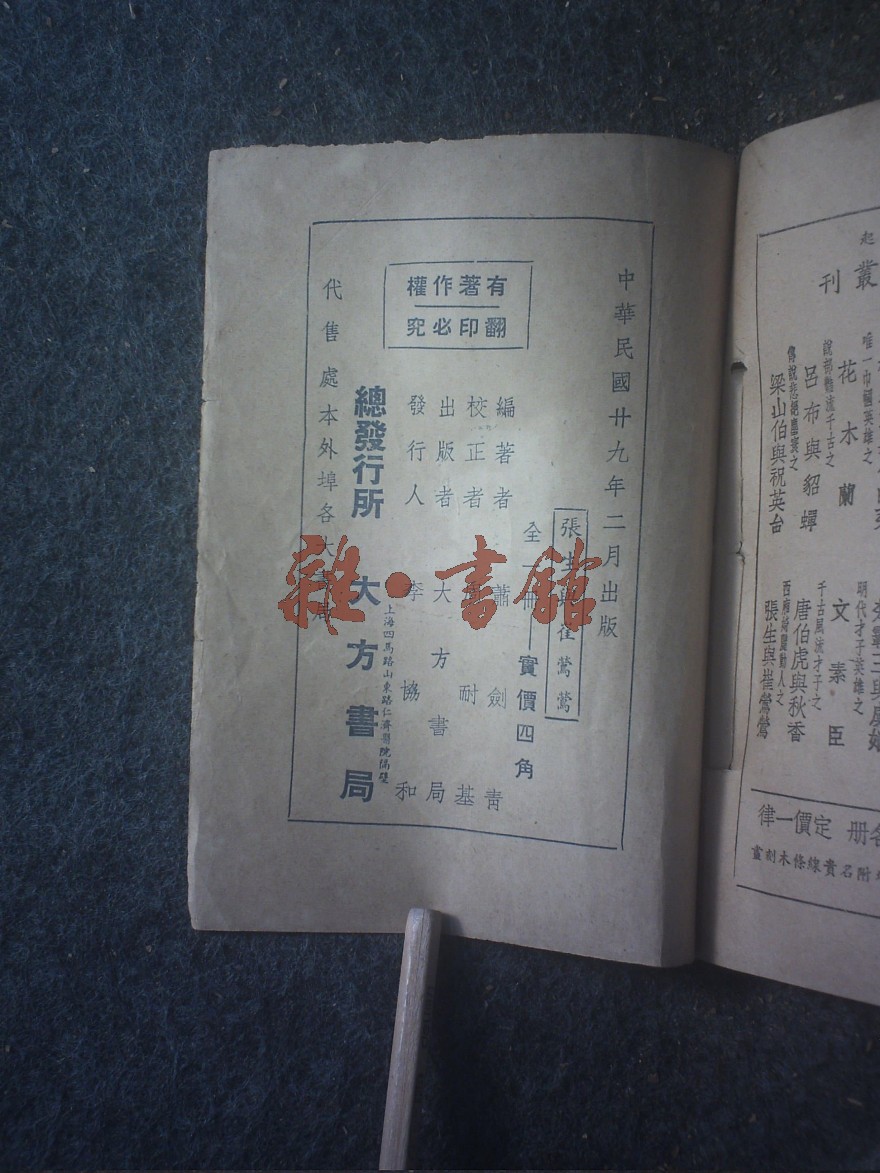 中華民國廿九年二月出版
張生與崔鶯鶯
全一冊——實價四角
編著者 蕭劍青
校正者 耐基
出版者 大方書局
發行人 李協和
有著作權
翻印必究
總發行所 大方書局
上海四馬路山東路仁濟醫院隔壁
代售處本外埠各大書局
雜·書館
起
叢
刊
唯一巾幗英雄之
花木蘭
說部艷流千古之
呂布與貂蟬
傳說悲絕塵寰之
梁山伯與祝英台
明代才子英雄之
文素臣
千古風流才子之
唐伯虎與秋香
西廂綺麗動人之
張生與崔鶯鶯
各册定價一律
附名貴線條木刻畫